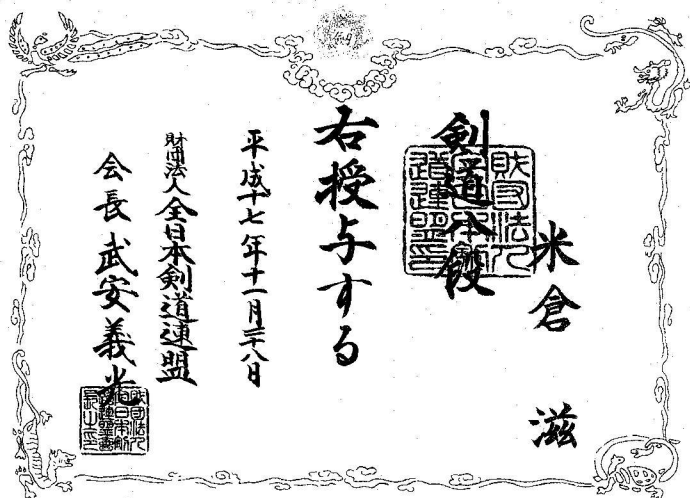 米倉 滋
剣道八段
右授与する
平成十七年十一月二十八日
財団法人全日本剣道連盟
会長武安義光